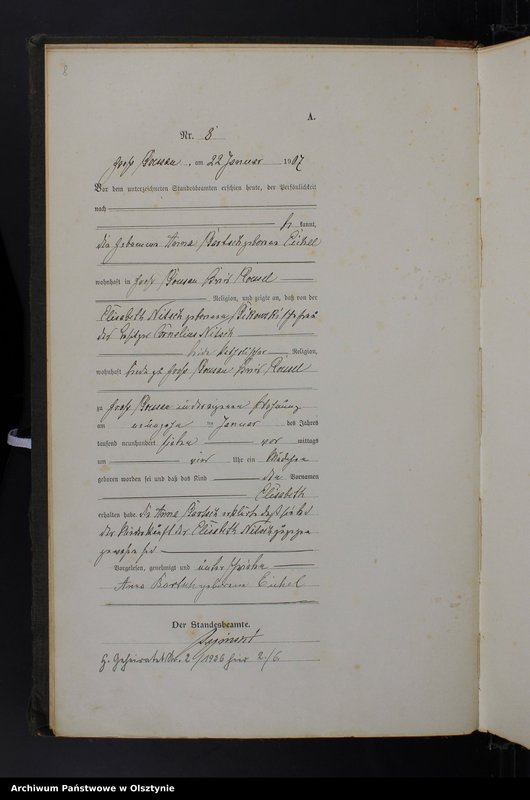 8
A.
Nr. 8
Groß Boessau, am 22 Januar 1907
Vor dem unterzeichneten Standesbeamten erschien heute, der Persönlichkeit
nach
be kannt,
die Hebamme Anna Bartsch geborene Eichel
wohnhaft in Groß Boessau Kreis Roessel
Religion, und zeigte an, daß von der
Elisabeth Nitsch geborenen Ehefrau
des Besitzer Cornelius Nitsch
beide katholischer Religion,
wohnhaft beide zu Groß Boessau Kreis Roessel
zu Groß Boessau in der eigenen Wohnung
am neunzehn ten Januar des Jahres
tausend neunhundert sieben vor mittags
um vier Uhr ein Mädchen
geboren worden sei und daß das Kind den Vornamen
Elisabeth
erhalten habe. Die Anna Bartsch erklärte daß sie bei
der Niederkunft der Elisabeth Nitsch zugegen
gewesen sei
Vorgelesen, genehmigt und unterschrieben
Anna Bartsch geborene Eichel
Der Standesbeamte.
Geheiratet Nr. 2/1936 hier
Archiwum Państwowe w Olsztynie